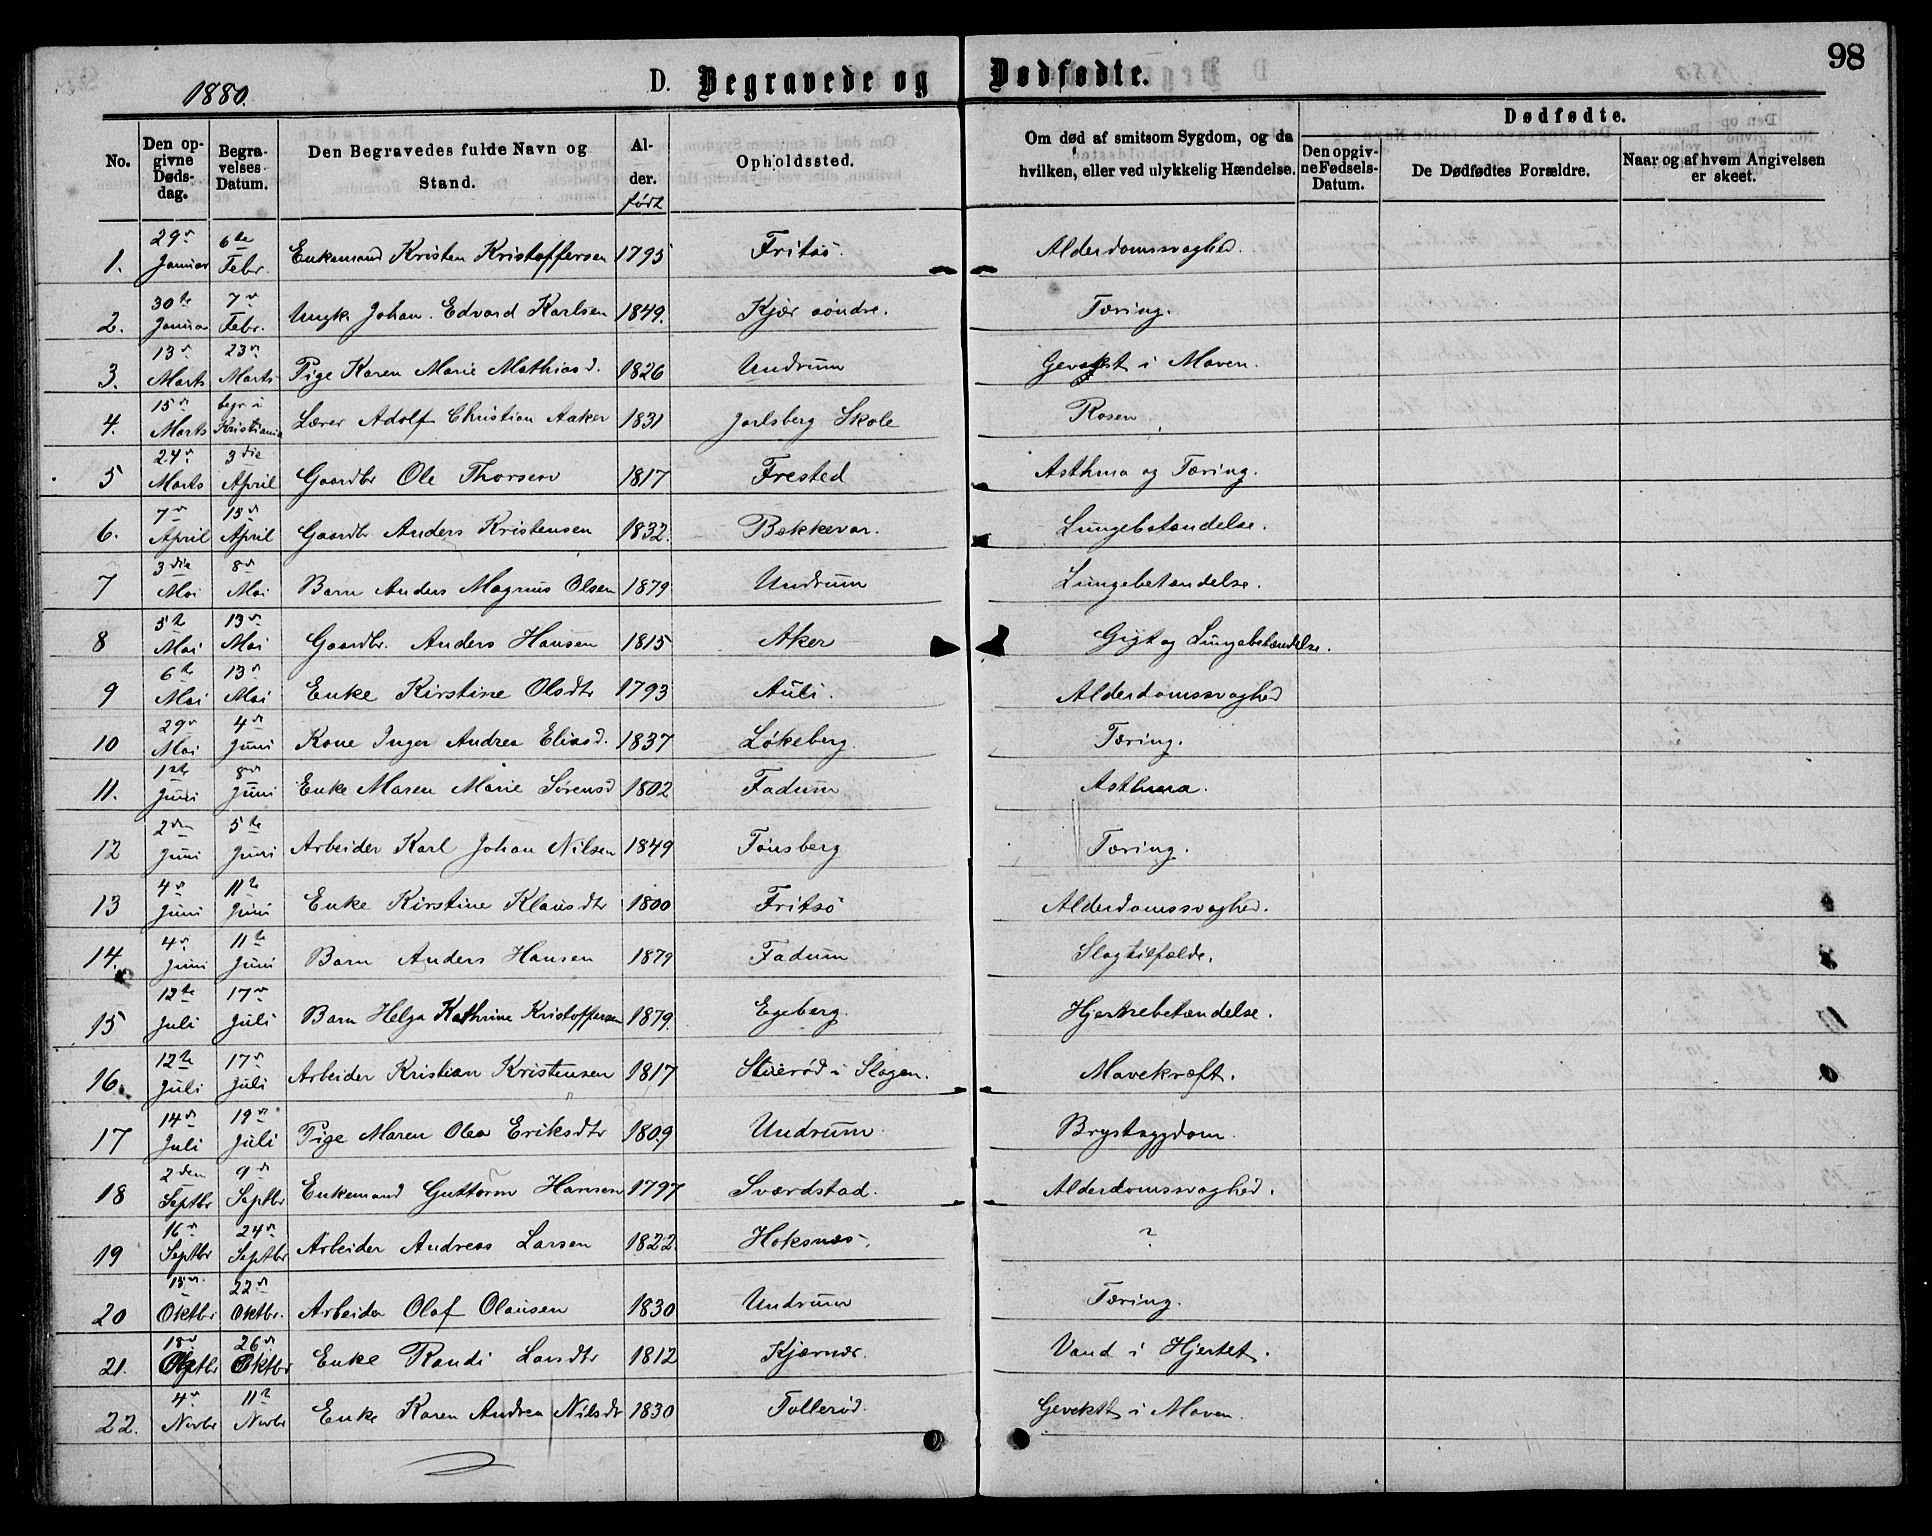 98
1880.
D. Begravede og Dødfødte.
No. | Den opgivne Dødsdag. | Begravelses Datum. | Den Begravedes fulde Navn og Stand. | Alder. født | Opholdssted. | Om død af smitsom Sygdom, og da hvilken, eller ved ulykkelig Hændelse. | Dødfødte. | Den opgivne Fødsels-Datum. | De Dødfødtes Forældre. | Naar og af hvem Angivelsen er skeet.
1. | 29de Januar | 6te Febr. | Enkemand Kristen Kristoffersen | 1795 | Fritsö. | Alderdomssvaghed.
2. | 30te Januar | 7de Febr. | Ungk. Johan Edvard Karlsen | 1849. | Kjær söndre. | Tæring.
3. | 13de Marts | 23de Marts | Pige Karen Marie Mathiasd. | 1826 | Undrum | Gevekst i Maven.
4. | 15de Marts | begr. i Kristiania | Lærer Adolf Christian Aaker | 1831 | Jarlsberg Skole | Rosen
5 | 24de Marts | 3die April | Gaardbr Ole Thorsen | 1817 | Frested | Asthma og Tæring.
6. | 7de April | 15de April | Gaardbr Anders Kristensen | 1832. | Bekkevar. | Lungebetændelse.
7 | 3die Mai | 8de Mai | Barn Anders Magnus Olsen | 1879 | Undrum | Lungebetændelse.
8 | 5te Mai | 13de Mai | Gaardbr. Anders Hansen | 1815 | Aker | Gigt og Lungebetændelse.
9 | 6te Mai | 13de Mai | Enke Kirstine Olsdtr | 1793 | Auli. | Alderdomssvaghed
10 | 29de Mai | 4de Juni | Kone Inger Andrea Eliasd. | 1837 | Lökeberg. | Tæring.
11. | 1ste Juni | 8de Juni | Enke Maren Marie Sørensd | 1802 | Fadum | Asthma.
12 | 2den Juni | 5te Juni | Arbeider Karl Johan Nilsen | 1849 | Tønsberg | Tæring.
13 | 4de Juni | 11te Juni | Enke Kirstine Klausdtr | 1800 | Fritsö | Alderdomssvaghed.
14. | 4de Juni | 11te Juni | Barn Anders Hansen | 1879 | Fadum | Slagtilfælde.
15 | 12te Juli | 17de Juli | Barn Helga Kathrine Kristoffersen | 1879. | Egeberg. | Hjertebetændelse.
16. | 12te Juli | 17de Juli | Arbeider Kristian Kristensen | 1817 | i Slagen. | Mavekræft.
17 | 14de Juli | 19de Juli | Pige Maren Olea Eriksdtr | 1809 | Undrum. | Brystsygdom.
18 | 2den Septbr | 9de Septbr | Enkemand Guttorm Hansen | 1797 | Sværdstad. | Alderdomssvaghed.
19 | 16de Septbr | 24de Septbr | Arbeider Andreas Larsen | 1822. | Hoksnæs. | ?
20 | 15de Oktbr | 22de Oktbr. | Arbeider Olaf Olausen | 1830 | Undrum | Tæring.
21. | 18de Oktbr | 26de Oktbr | Enke Randi Larsdtr | 1812 | Kjærnær. | Vand i Hjertet.
22. | 4de Novbr | 11te Novbr | Enke Karen Andrea Nilsdtr | 1830 | Tollerød. | Gevekst i Maven.